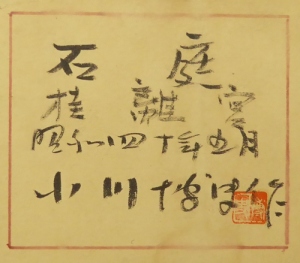 石庭
桂離宮
昭和四十年五月
小川 作